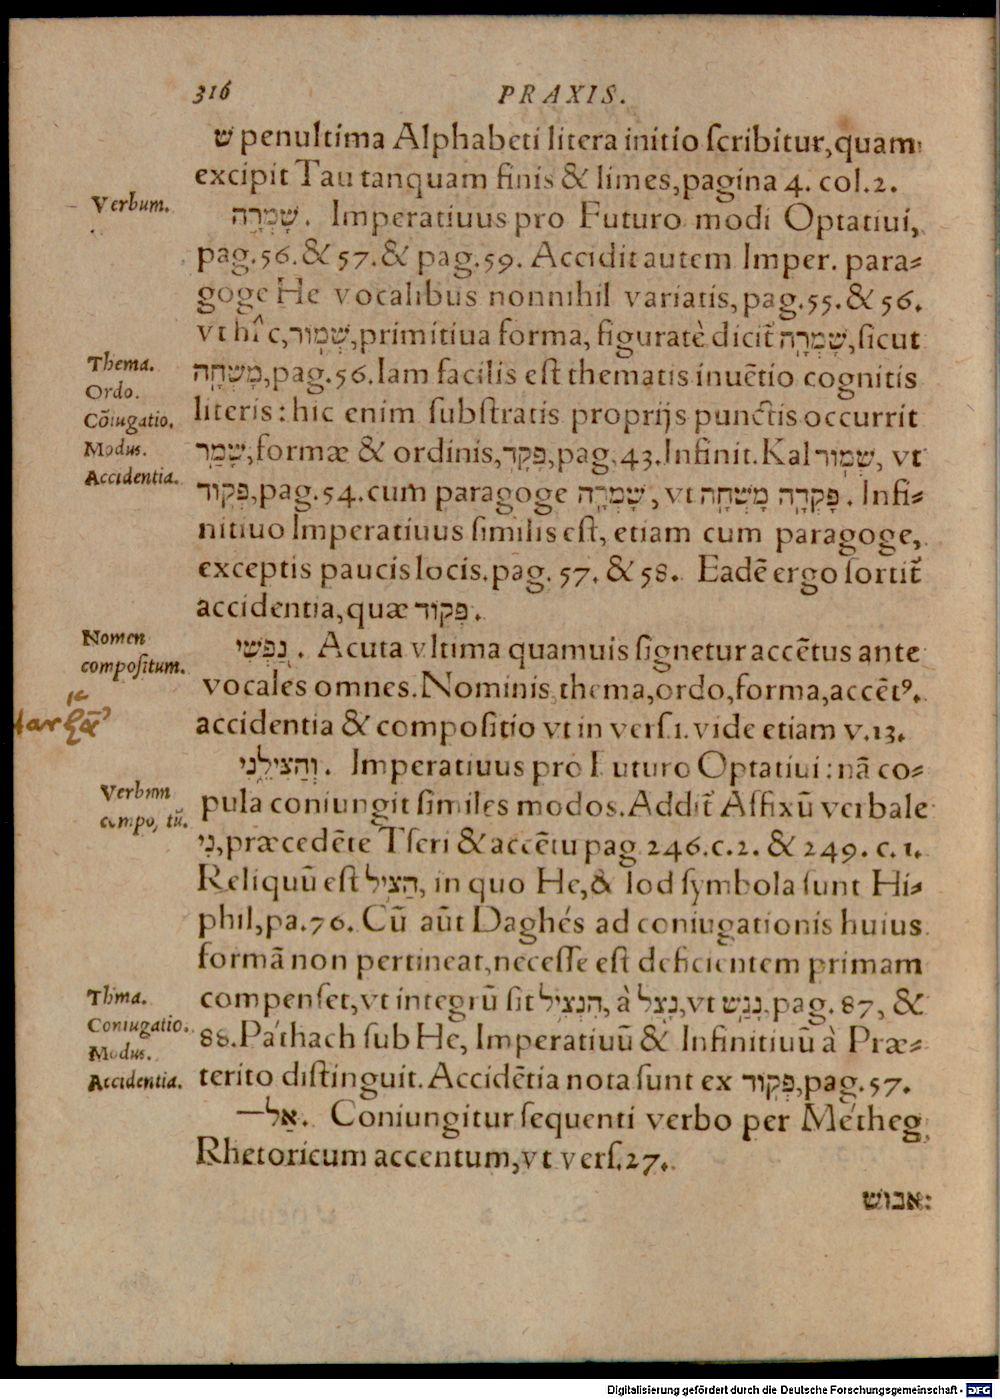 316 PRAXIS.
ש penultima Alphabeti litera initio ſcribitur,quam
excipit Tau tanquam finis & limes,pagina 4. col.2.
Verbum.
שָׁמְרָה. Imperatiuus pro Futuro modi Optatiui,
pag.56.& 57.& pag.59. Accidit autem Imper. para⸗
goge He vocalibus nonnihil variatis,pag.55.& 56.
vt hîc,שְׁמוֹר,primitiua forma, figuratè dicit̃ שָׁמְרָה,ſicut
Thema.
מָשְׁחָה,pag.56.Iam facilis eſt thematis inuẽtio cognitis
Ordo.
Cõiugatio.
literis: hic enim ſubſtratis proprijs punctis occurrit
Modus.
שָׁמַר,formæ & ordinis,פָּקַד,pag.43.Infinit.Kal שְׁמוֹר, vt
Accidentia.
פְּקוֹד,pag.54.cum paragoge שָׁמְרָה, vt פָּקְדָה מָשְׁחָה. Infi⸗
nitiuo Imperatiuus ſimilis eſt, etiam cum paragoge,
exceptis paucis locis.pag. 57. & 58. Eadẽ ergo ſortit̃
accidentia,quæ פְּקוֹד.
Nomen
compoſitum.
נַפְשִׁי. Acuta vltima quamuis ſignetur accẽtus ante
vocales omnes.Nominis thema,ordo,forma,accẽtꝰ.
accidentia & compoſitio vt in verſ.1. vide etiam v.13.
וְהַצִּילֵנִי. Imperatiuus pro Futuro Optatiui: nã co⸗
Verbum
compoſitũ.
pula coniungit ſimiles modos.Addit̃ Affixũ verbale
נִי,præcedẽte Tſeri & accẽtu pag 246.c.2. & 249. c.1.
Reliquũ eſt הַצִּיל, in quo He,& Iod ſymbola ſunt Hi⸗
phil,pa.76. Cũ aũt Daghés ad coniugationis huius
formã non pertineat,neceſſe eſt deficientem primam
Thma.
compenſet,vt integrũ ſit הַנְצִיל, à נָצַל,vt נָגַשׁ,pag. 87, &
Coniugatio.
88.Páthach ſub He, Imperatiuũ & Infinitiuũ à Præ⸗
Modus.
Accidentia.
terito diſtinguit.Accidẽtia nota ſunt ex פְּקוֹד,pag.57.
אַל—. Coniungitur ſequenti verbo per Métheg
Rhetoricum accentum,vt verſ.27.
אבוש:
Digitalisierung gefördert durch die Deutsche Forschungsgemeinschaft - DFG